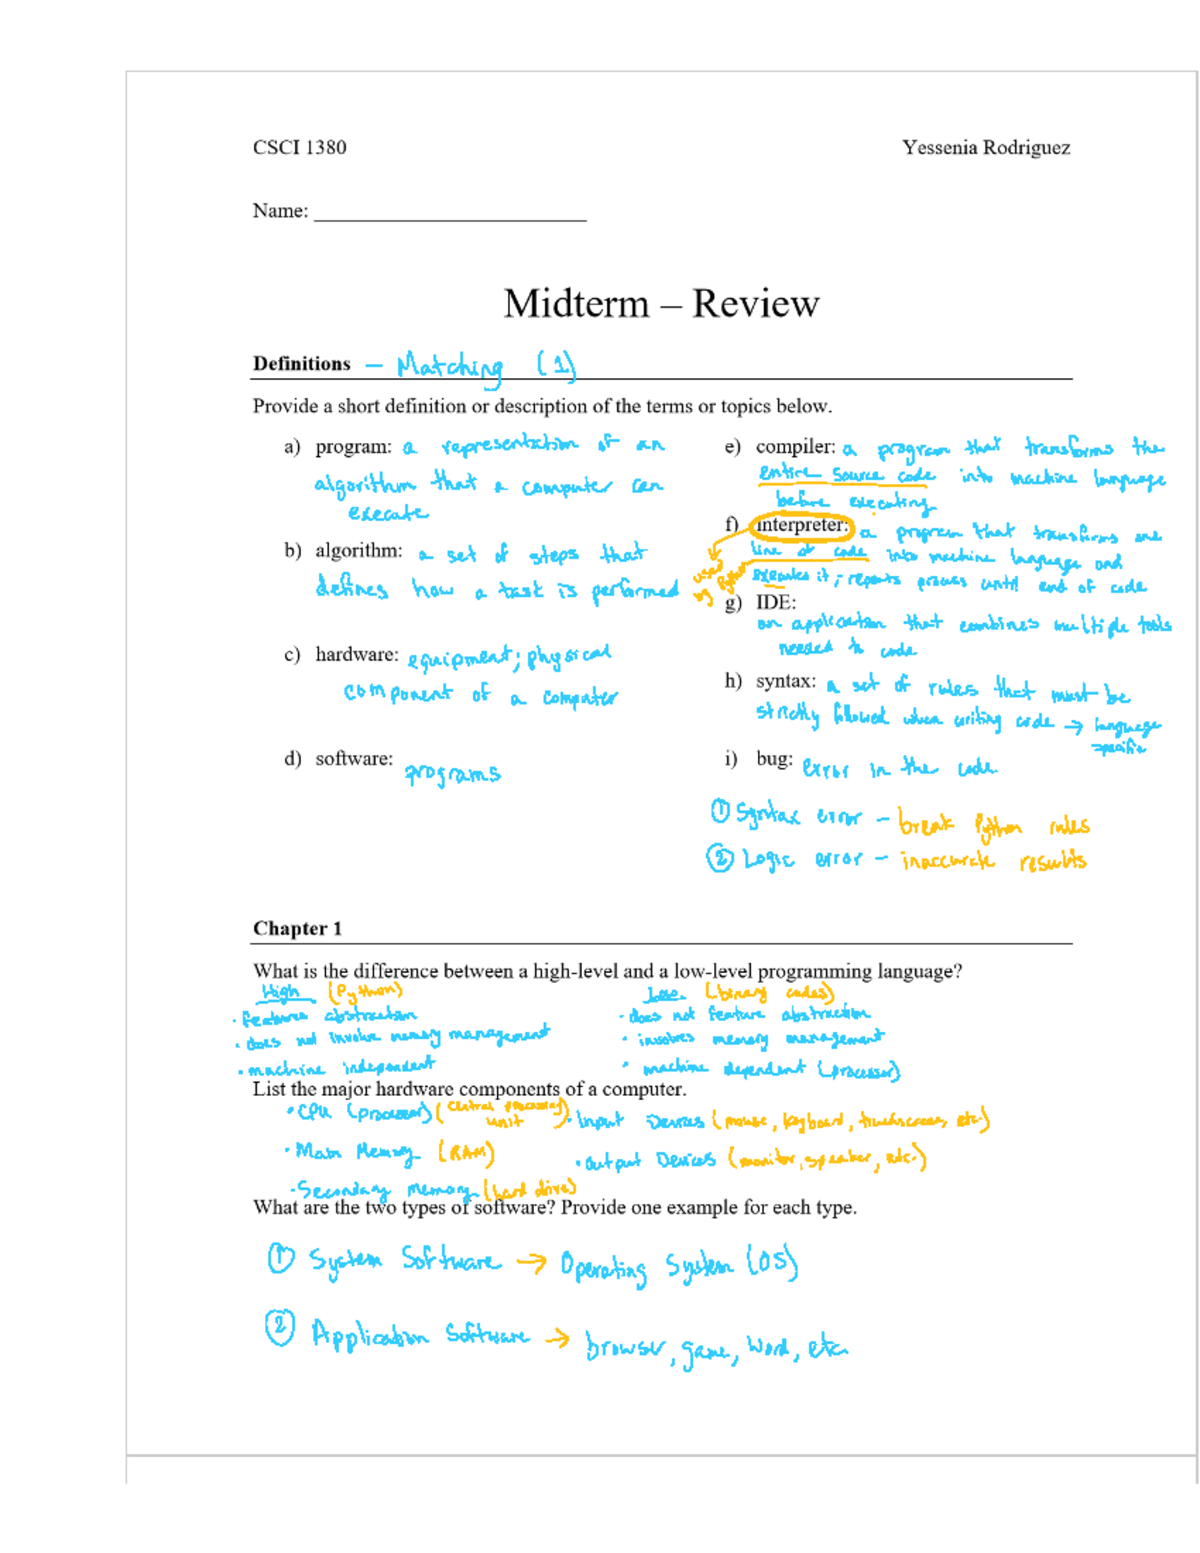 CSCI 1380 Yessenia Rodriguez
Name:
Midterm – Review
Definitions — Matching (1)
Provide a short definition or description of the terms or topics below.
a) program: a representation of an
algorithm that a computer can
execute
b) algorithm: a set of steps that
defines how a task is performed
c) hardware: equipment; physical
component of a computer
d) software: programs
e) compiler: a program that transforms the
entire source code into machine language
before executing
f) interpreter: a program that transforms one
line of code into machine language and
executes it; repeats process until end of code
used by Python
g) IDE:
an application that combines multiple tools
needed to code
h) syntax: a set of rules that must be
strictly followed when writing code → language
specific
i) bug: error in the code
① Syntax error – break Python rules
② Logic error – inaccurate results
Chapter 1
What is the difference between a high-level and a low-level programming language?
High (Python) Low (binary codes)
· features abstraction · does not feature abstraction
· does not involve memory management · involves memory management
· machine independent · machine dependent (processor)
List the major hardware components of a computer.
· CPU (processor) (central processing unit) · Input Devices (mouse, keyboard, touchscreens, etc.)
· Main Memory (RAM) · Output Devices (monitor, speaker, etc.)
· Secondary memory (hard drive)
What are the two types of software? Provide one example for each type.
① System Software → Operating System (OS)
② Application Software → browser, game, Word, etc